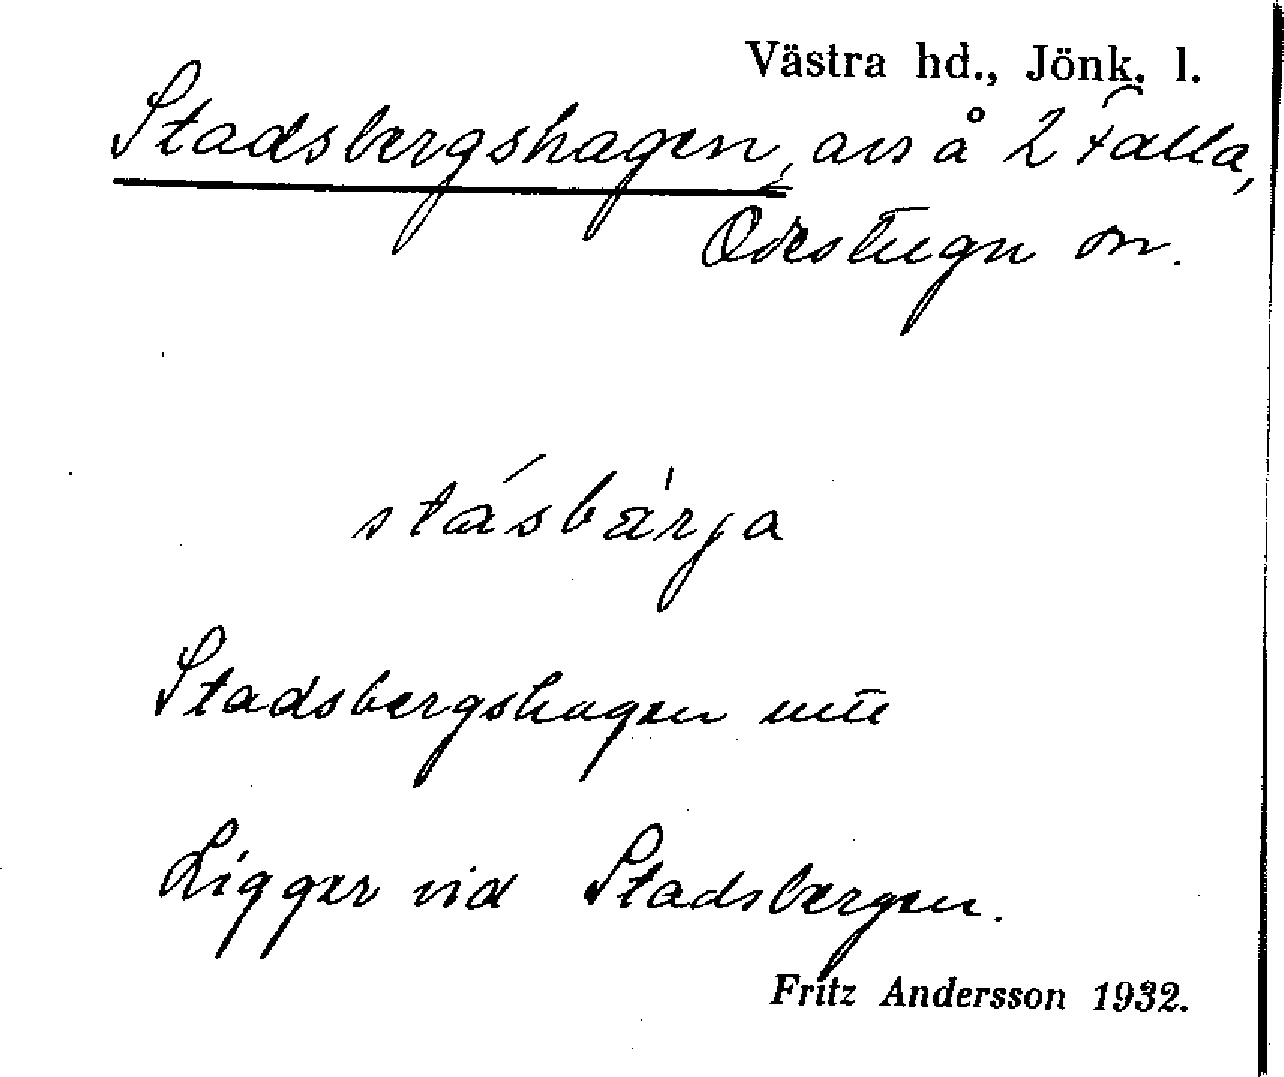 Västra hd., Jönk. l.
Stadsbergshagen, avs å 2 Falla,
Odestugu sn.
stásbärja
Stadsbergshagen utu
Ligger vid Stadsbergen.
Fritz Andersson 1932.